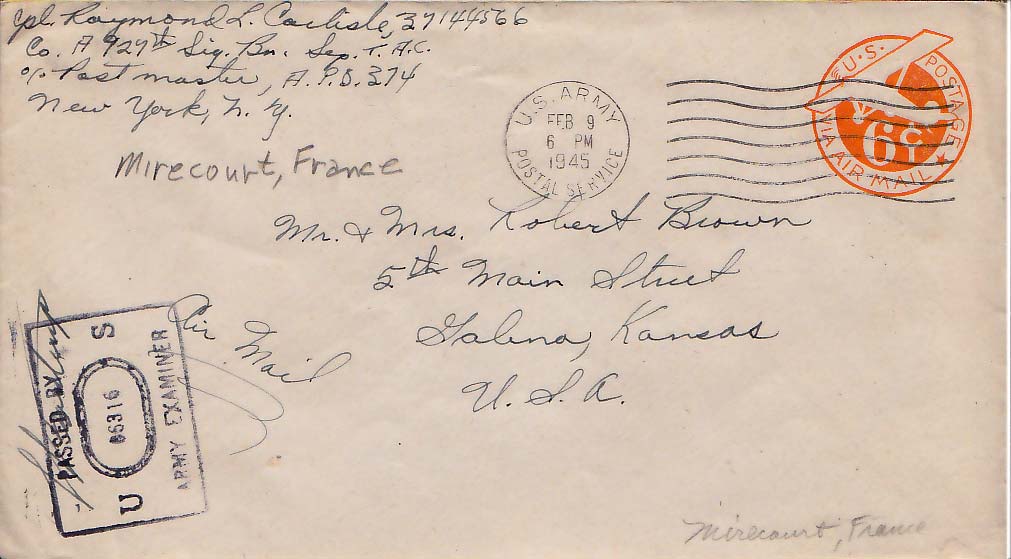 Cpl. Raymond L. Carlisle, 37144566
Co. A 927th Sig. Bn. Sep. T.A.C.
c/o Postmaster, A.P.O. 374
New York, N.Y.
Mirecourt, France
U.S. ARMY
FEB 9
6 PM
1945
POSTAL SERVICE
U.S. POSTAGE
6c
VIA AIR MAIL
Mr. & Mrs. Robert Brown
5th Main Street
Galena, Kansas
U.S.A.
Air Mail
PASSED BY
U S
06316
ARMY EXAMINER
Mirecourt, France